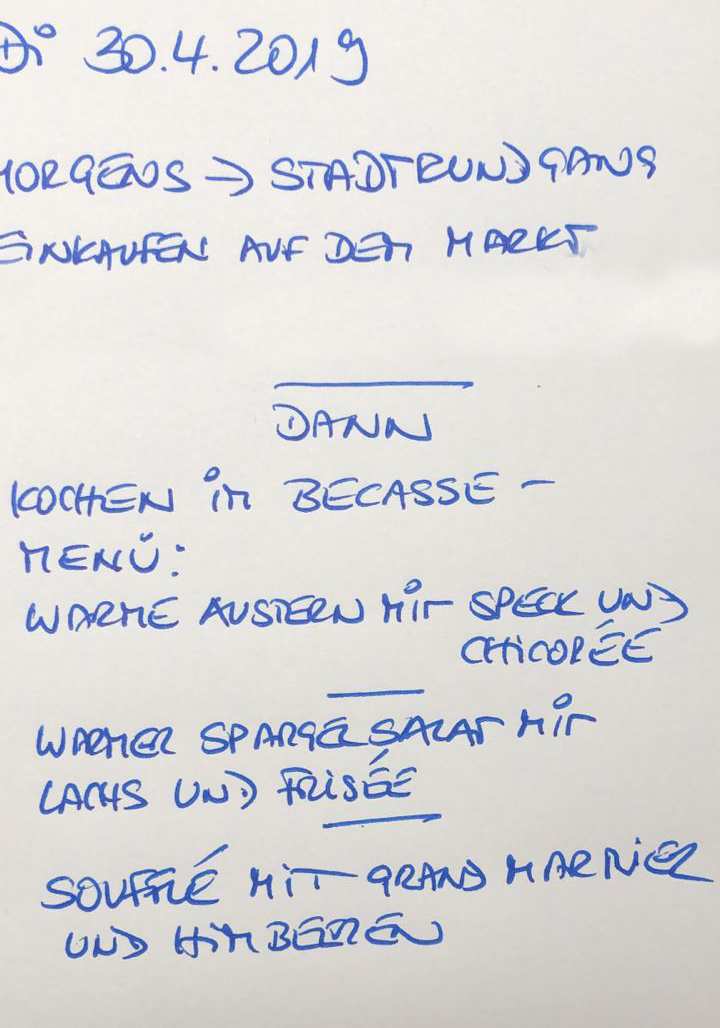 Di 30.4.2019
MORGENS → STADTRUNDGANG
EINKAUFEN AUF DEM MARKT
DANN
KOCHEN im BECASSE -
MENÜ:
WARME AUSTERN MIT SPECK UND
CHICORÉE
WARMER SPARGELSALAT MIT
LACHS UND FRISÉE
SOUFFLÉ MIT GRAND MARNIER
UND HIMBEEREN